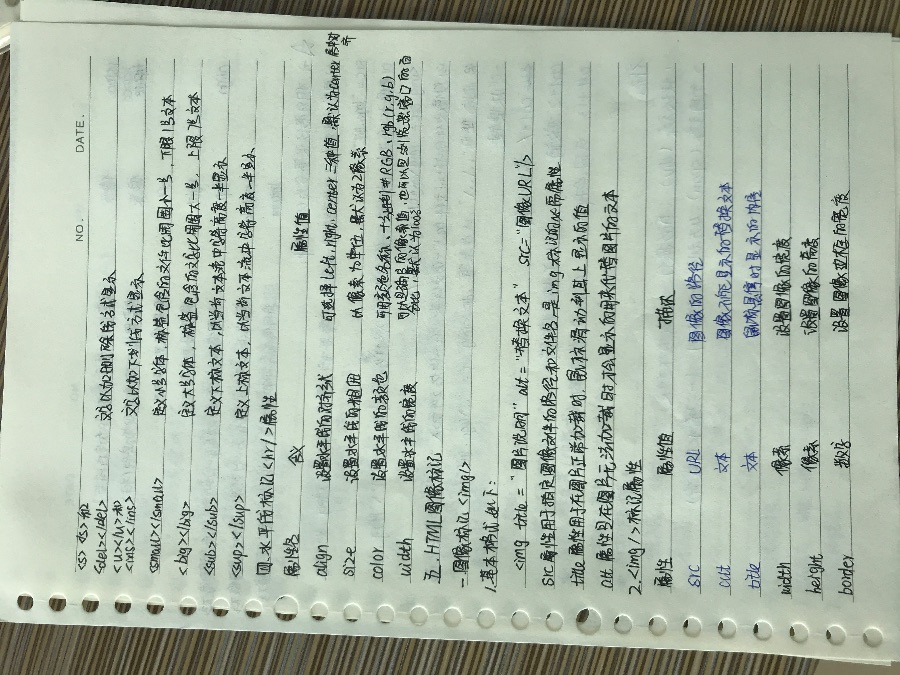 NO. DATE.
<s></s>和
<del></del> 文字以加删除线方式显示
<u></u>和
<ins></ins> 文字以加下划线方式显示
<small></small> 定义小号字体，标签包含的文件比周围小一号，下限1号文本
<big></big> 定义大号字体，标签包含的文字比周围大一号，上限7号文本
<sub></sub> 定义下标文本，以当前文本流中字符高度一半显示
<sup></sup> 定义上标文本，以当前文本流中字符高度一半显示
四、水平线标记<hr/>属性
属性名 含义 属性值
align 设置水平线的对齐方式 可选择left、right、center三种值，默认为center居中对齐
size 设置水平线的粗细 以像素为单位，默认为2像素
color 设置水平线的颜色 可用颜色名称、十六进制#RGB、rgb(r,g,b)
width 设置水平线的宽度 可以是确定的像素值，也可以是浏览器窗口的百分比，默认为100%
五、HTML图像标记
一、图像标记<img/>
1.基本格式如下：
<img title="图片说明" alt="替换文本" src="图像URL"/>
src属性用于指定图像文件的路径和文件名，是img标记的必需属性
title属性用于在图片正常加载时，鼠标滑动到其上显示的值
alt属性当在图片无法加载时，才会显示的用来代替图片的文本
2.<img/>标记属性
属性 属性值 描述
src URL 图像的路径
alt 文本 图像不能显示的替换文本
title 文本 鼠标悬停时显示的内容
width 像素 设置图像的宽度
height 像素 设置图像的高度
border 数字 设置图像边框的宽度